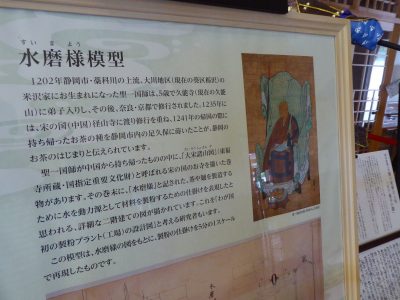 すい ま よう
水磨様模型
1202年静岡市・藁科川の上流、大川地区(現在の葵区栃沢)の
米沢家にお生まれになった聖一国師は、5歳で久能寺(現在の久能
山)に弟子入りし、その後、奈良・京都で修行されました。1235年に
は、宋の国(中国)径山寺に渡り修行を重ね、1241年の帰国の際に
持ち帰ったお茶の種を静岡市内の足久保に蒔いたことが、静岡の
お茶のはじまりと伝えられています。
聖一国師が中国から持ち帰ったものの中に、「大宋諸山図」(東福
寺所蔵・国指定重要文化財)と呼ばれる宋の国のお寺を描いた巻
物があります。その巻末に、「水磨様」と記された、茶や麺を製造する
ために水を動力源として材料を製粉するための仕掛けを表現したと
思われる、詳細な二階建ての図が描かれています。これを「わが国
初の製粉プラント(工場)の設計図」と考える研究者もいます。
この模型は、水磨様の図をもとに、製粉の仕掛けを5分の1スケール
で再現したものです。